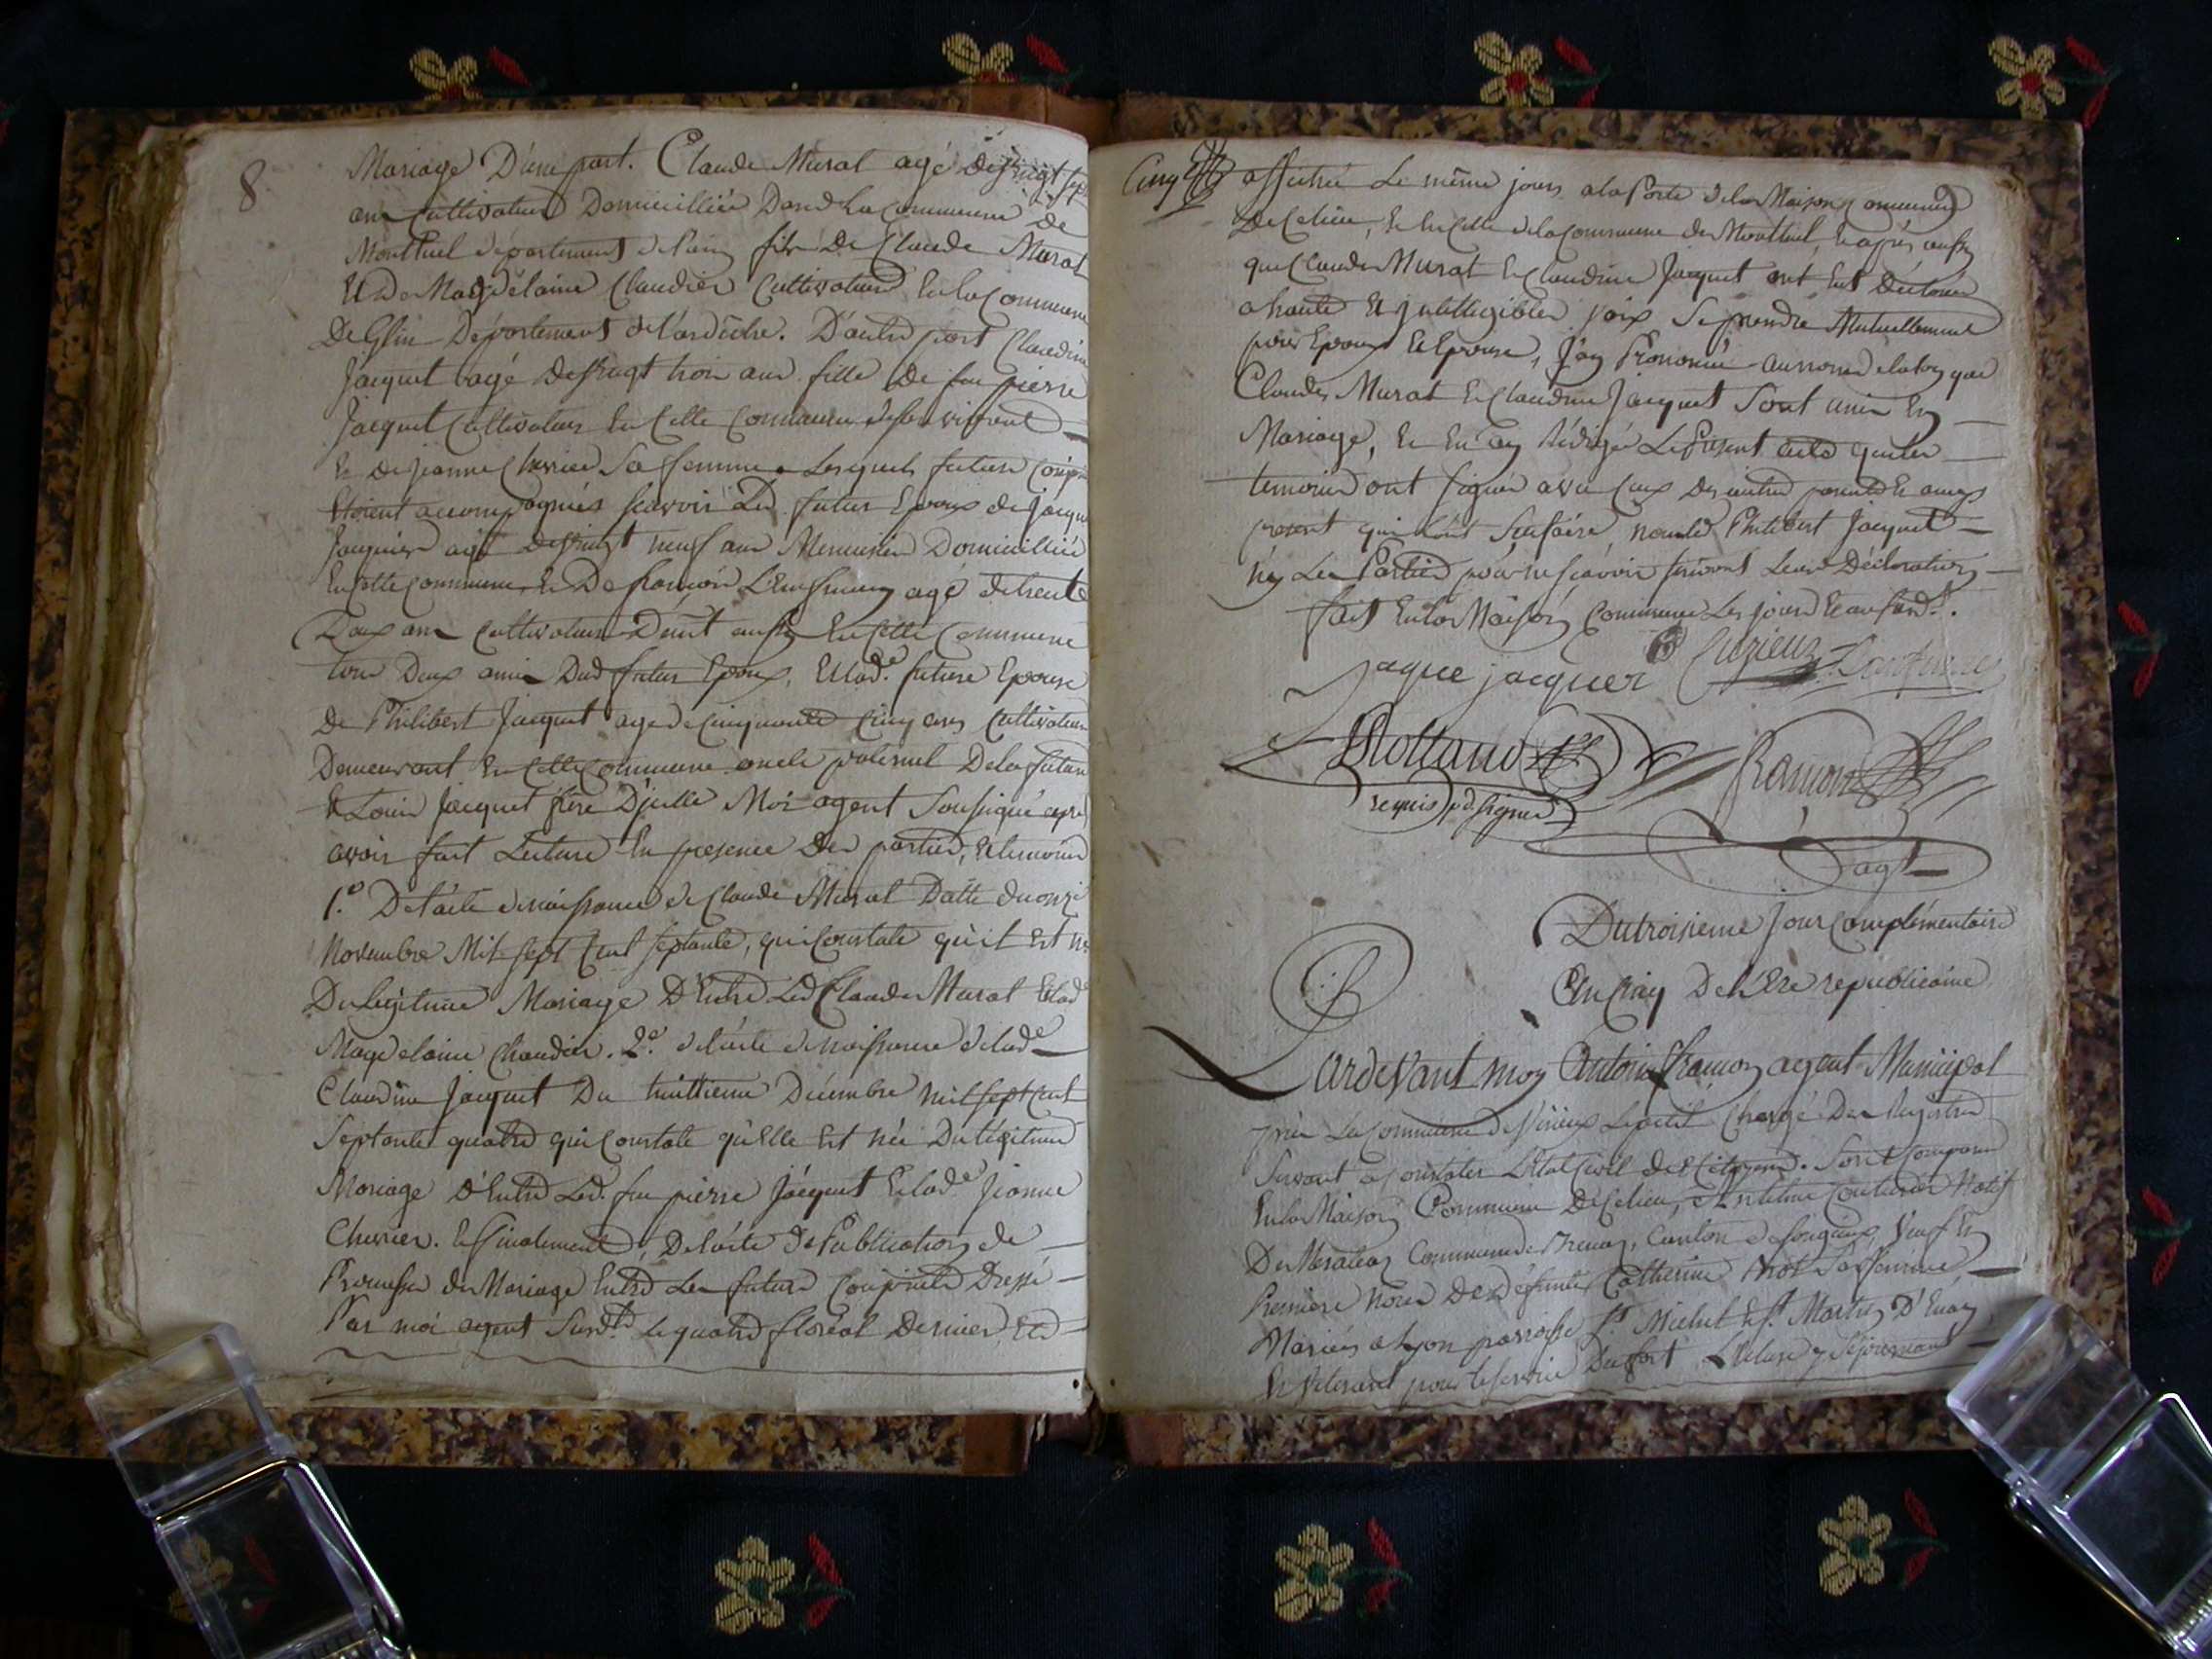 8
Mariage D'une part. Claude Murat agé De vingt sept
ans Cultivateur Domicillié Dans La Commune de
Montluel département de l'ain fils De Claude Murat
Et De Magdelaine Claudier Cultivateur En la Commune
De Glun Département de l'ardèche. D'autre part Claudine
Jacquet agé De vingt trois ans fille De feu pierre
Jacquet Cultivateur En Cette Commune
Et De jeanne Chevrier Sa femme Lesquels futurs Conjoints
Etoient accompagnés scavoir Led. futur Epoux de jacque
Jacquier agé De vingt neuf ans Menuisier Domicillié
En Cette Commune Et De françois agé de trente
Deux ans Cultivateur Dud. En Cette Commune
tous Deux amis Dud futur Epoux, Et lad.e future Epouse
De Philibert Jacquet agé de Cinquante Cinq ans Cultivateur
Demeurant En Cette Commune oncle paternel De la future
Et Louis Jacquet frère D'jcelle Moi agent Soussigné après
avoir fait Lecture En presence Des parties, Et temoins
1.o De l'acte de naissance de Claude Murat Datte du onze
Novembre Mil sept Cent septante, qui Constate qu'il Est né
Du Légitime Mariage D'Entre Led Claude Murat Et lad.e
Magdelaine Claudier. 2.o de l'acte de naissance de lad.e
Claudine Jacquet Du huittieme Décembre mil sept cent
Septante quatre qui Constate qu'Elle Est née Du légitime
Mariage D'Entre Led. feu pierre Jacquet Et lad.e Jeanne
Chevrier. Et finalement, De l'acte De Publication de
Promesse de Mariage Entre Les futurs Conjoints Dressé
Par moi agent Susd.t Le quatre floréal Dernier, Et
Cinq affiché Le même jour a la Porte de la Maison Commune
De Ce lieu, Et En Celle de la Commune de Montluel, Et après aussy
que Claude Murat Et Claudine Jacquet ont Eut Déclaré
a haute Et jntelligible voix Se prendre Mutuellement
pour Epoux Et Epouse, J'ay Prononcé au nom de la loy que
Claude Murat Et Claudine Jacquet Sont unis En
Mariage, Et En ay Rédigé Le Présent acte que les
temoins ont signé avec Ceux Des autres parents Et amis
present qui l'ont Scu faire, non led Philibert Jacquet
ny Les Parties pour ne scavoir suivant Leur Déclaration
fait En la Maison Commune Les jour Et an susd.t.
jaque jacquer Cuzieux
Rolland
requis p.r signer
Framon
agt
Du troisieme Jour Complémentaire
An Cinq De l'Ere republicaine
Pardevant moy Antoine Framon agent Municipal
pour La Commune de Virieux Le petit Chargé Des Registres
Servant a Constater L'Etat Civil des Citoyens. Sont Comparus
En la Maison Commune De Ce lieu, Couturier Natif
De Commune de Brenaz, Canton de Songieux, Veuf En
Premiere Noces De défunte Catherine Sa femme,
Mariés a Lyon parroisse S.t Michel Et S.t Martin D'Enay
Et Vétérant pour le service Du fort L'Ecluse y Séjournant